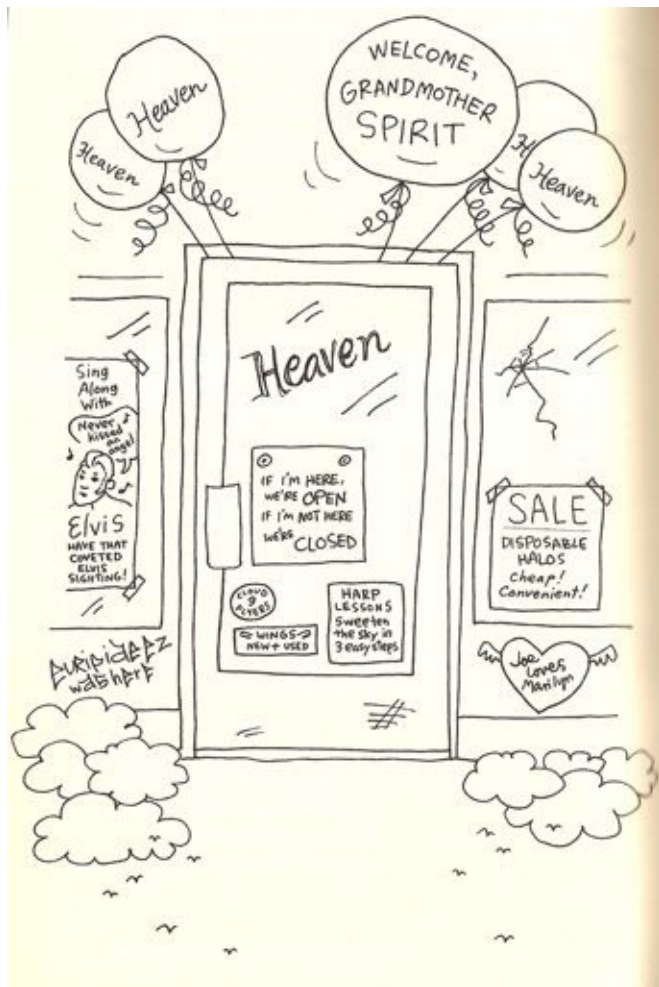 Heaven
Heaven
WELCOME,
GRANDMOTHER
SPIRIT
Heaven
Heaven
Sing
Along
With
Never
kissed
an
angel
Elvis
HAVE THAT
COVETED
ELVIS
SIGHTING!
IF I'M HERE,
WE'RE OPEN
IF I'M NOT HERE
WE'RE CLOSED
CLOUD
9
FLYERS
WINGS
NEW + USED
HARP
LESSONS
Sweeten
the sky in
3 easy steps
SALE
DISPOSABLE
HALOS
Cheap!
Convenient!
EURIPIDEEZ
WAS HERE
Joe
Loves
Marilyn